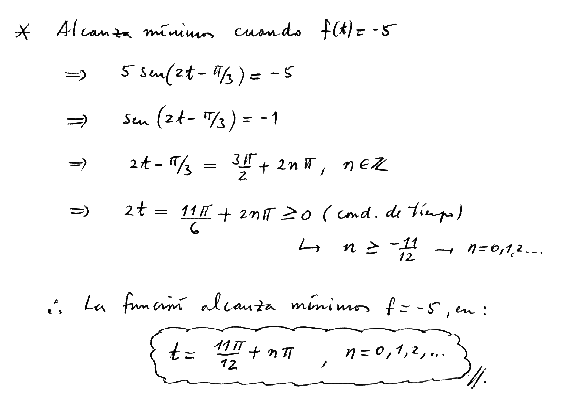 * Alcanza mínimos cuando f(t) = -5
=> 5 sen(2t - π/3) = -5
=> sen (2t - π/3) = -1
=> 2t - π/3 = 3π/2 + 2nπ, n∈ℤ
=> 2t = 11π/6 + 2nπ ≥ 0 (cond. de tiempo)
↳ n ≥ -11/12 → n=0,1,2...
∴ La función alcanza mínimos f = -5, en:
t = 11π/12 + nπ , n=0,1,2,... //.